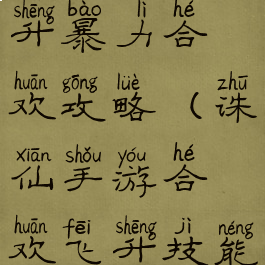 shēng bào lì hé
升暴力合
huān gōng lüè zhū
欢攻略（诛
xiān shǒu yóu hé
仙手游合
huān fēi shēng jì néng
欢飞升技能